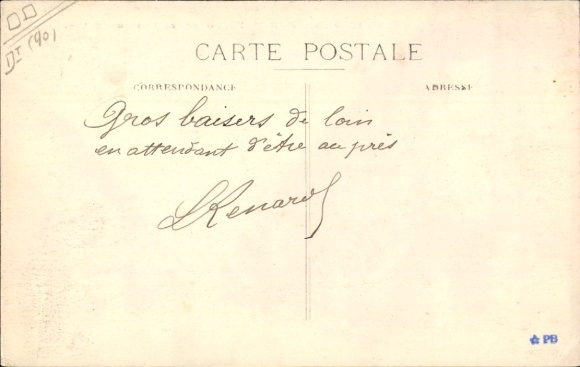 DT (40)
CARTE POSTALE
CORRESPONDANCE
ADRESSE
Gros baisers de loin
en attendant d'être au près
LRenard
PB